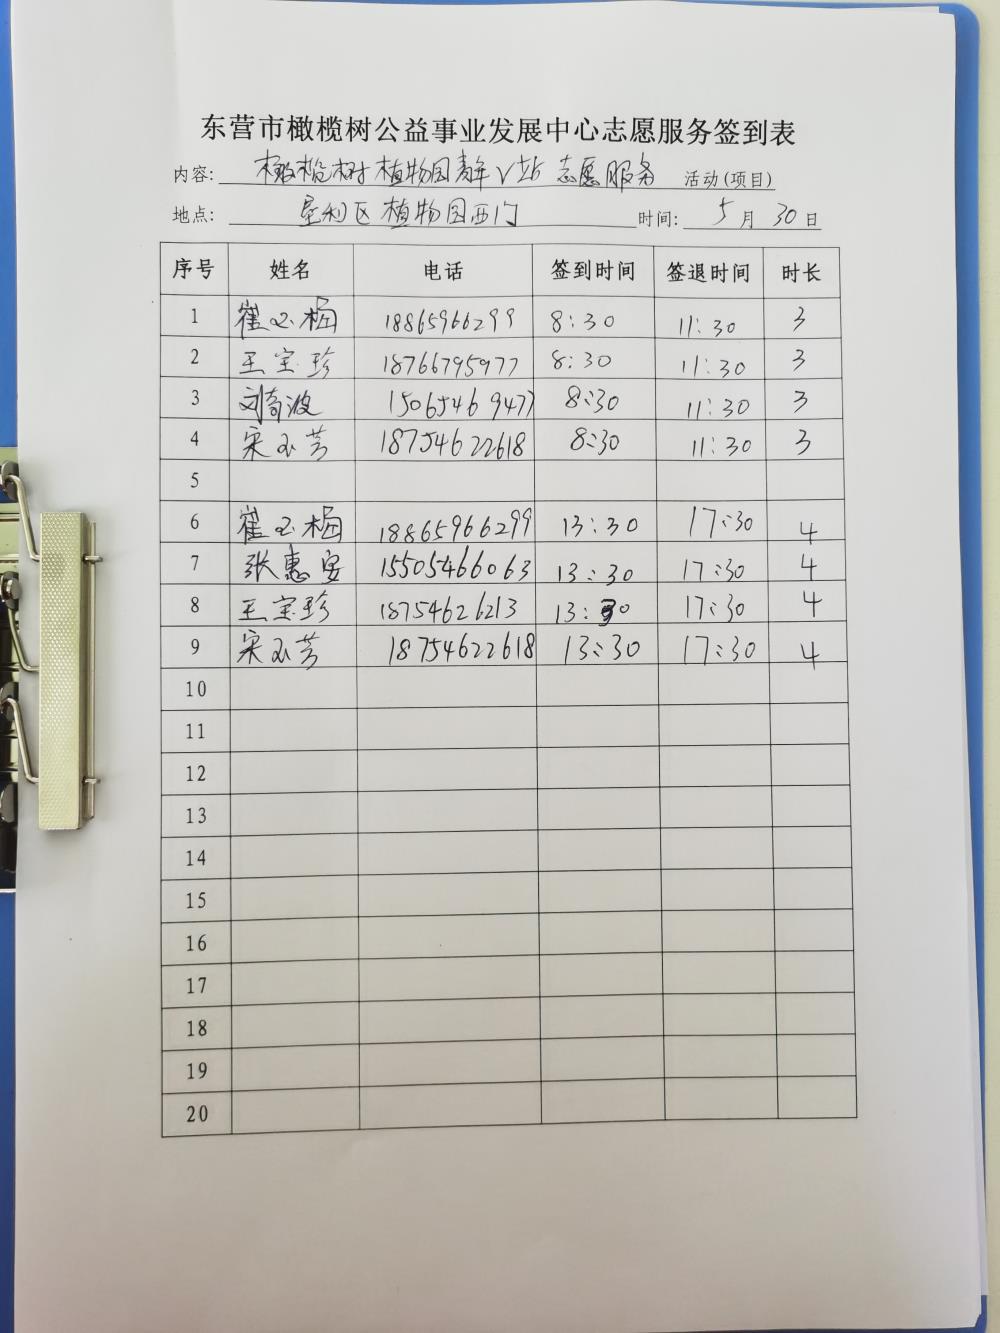 东营市橄榄树公益事业发展中心志愿服务签到表
内容: 橄榄树植物园青年V站志愿服务 活动(项目)
地点: 垦利区植物园西门 时间: 5月30日
序号 姓名 电话 签到时间 签退时间 时长
1 崔玉梅 18865966299 8:30 11:30 3
2 王宝珍 18766795977 8:30 11:30 3
3 刘奇波 15065469477 8:30 11:30 3
4 宋玉芳 18754622618 8:30 11:30 3
5
6 崔玉梅 18865966299 13:30 17:30 4
7 张惠安 15505466063 13:30 17:30 4
8 王宝珍 18754626213 13:30 17:30 4
9 宋玉芳 18754622618 13:30 17:30 4
10
11
12
13
14
15
16
17
18
19
20